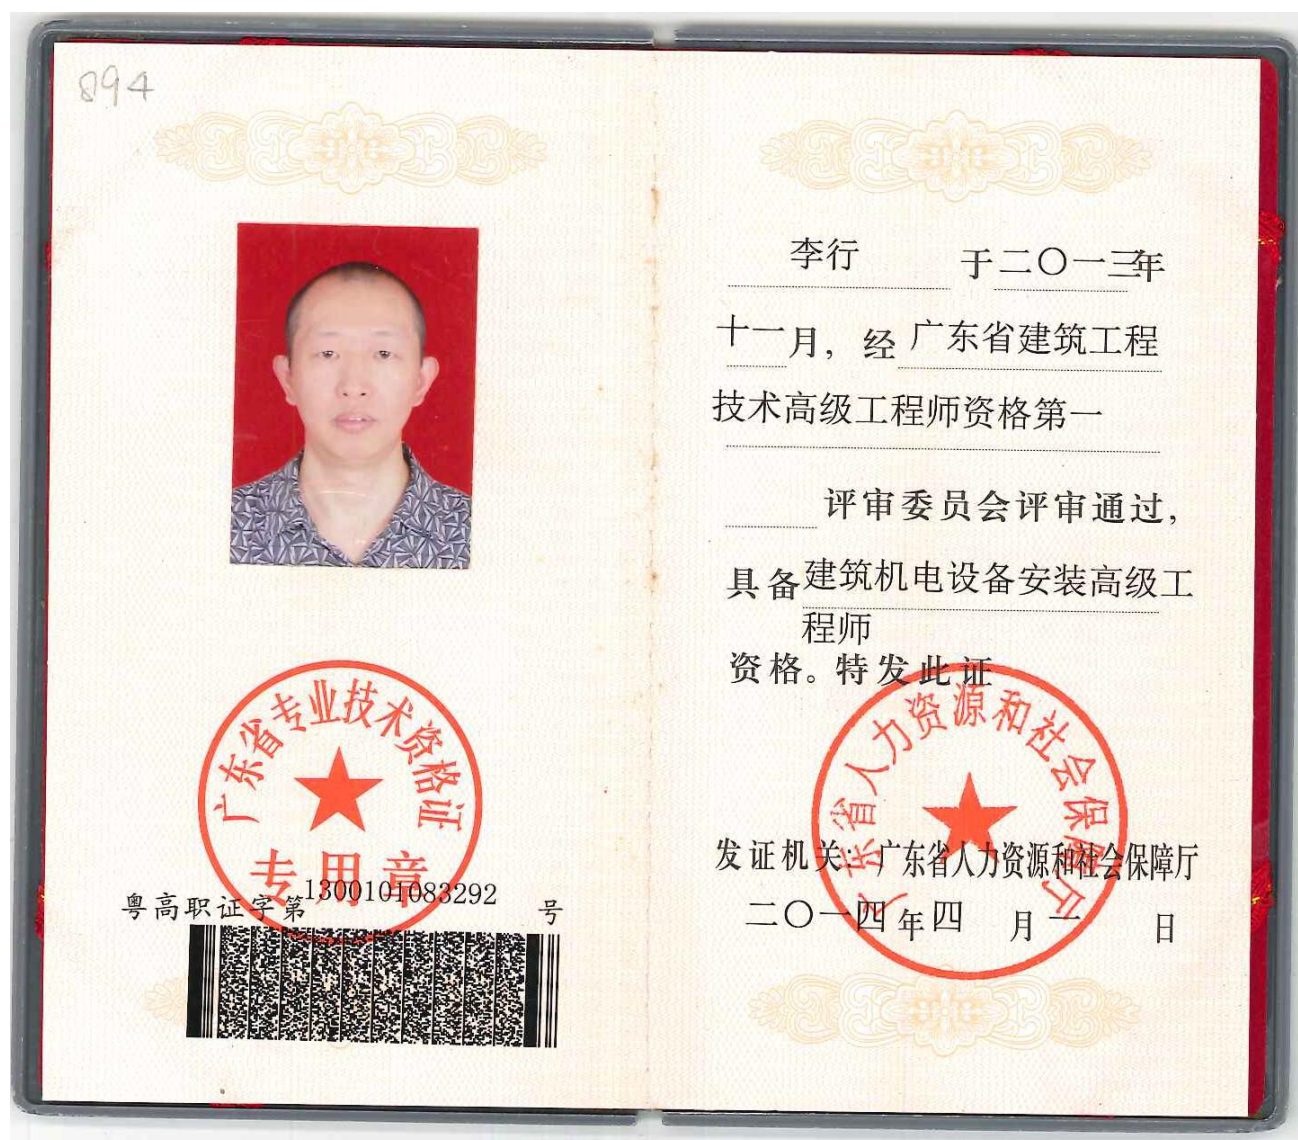 894
广东省专业技术资格证
专用章
粤高职证字第1300101083292号
李行 于二〇一三年
十一月，经广东省建筑工程
技术高级工程师资格第一
评审委员会评审通过，
具备建筑机电设备安装高级工
程师
资格。特发此证
广东省人力资源和社会保障厅
发证机关：广东省人力资源和社会保障厅
二〇一四年四月一日